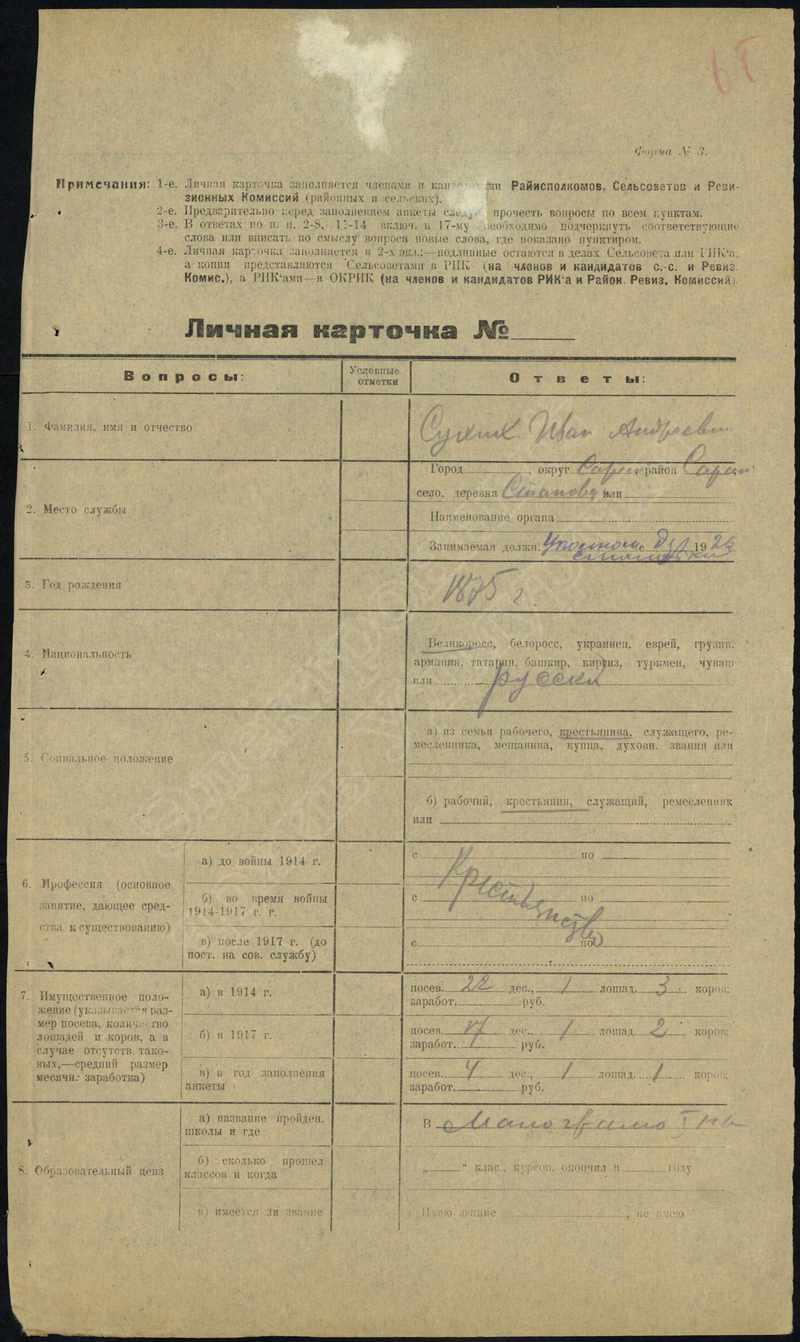 Форма № 3.
Примечания: 1-е. Личная карточка заполняется членами и Райисполкомов, Сельсоветов и Реви-
зионных Комиссий (районных и сельских).
2-е. Предварительно перед заполнением анкеты прочесть вопросы по всем пунктам.
3-е. В ответах по п. п. 2-8, 11-14 включ. и 17-му необходимо подчеркнуть соответствующие
слова или вписать по смыслу вопроса новые слова, где показано пунктиром.
4-е. Личная карточка заполняется в 2-х экз.:—подлинные остаются в делах Сельсовета или РИК'а,
а копии представляются Сельсоветами в РИК (на членов и кандидатов с.-с. и Ревиз.
Комис.), а РИК'ами—в ОКРИК (на членов и кандидатов РИК'а и Район. Ревиз. Комиссий).
Личная карточка №
Вопросы:
Условные отметки
Ответы:
1. Фамилия, имя и отчество
Сухих Иван Андреевич
2. Место службы
Город , округ Сарап район Сарап
село, деревня или
Наименование органа
Занимаемая должн. с 1926
3. Год рождения
1875 г.
4. Национальность
Великоросс, белоросс, украинец, еврей, грузин,
армянин, татарин, башкир, киргиз, туркмен, чуваш
или русский
5. Социальное положение
а) из семьи рабочего, крестьянина, служащего, ре-
месленника, мещанина, купца, духовн. звания или
б) рабочий, крестьянин, служащий, ремесленник
или
6. Профессия (основное
занятие, дающее сред-
ства к существованию)
а) до войны 1914 г.
с по
б) во время войны
1914-1917 г. г.
с по
в) после 1917 г. (до
пост. на сов. службу)
с по
7. Имущественное поло-
жение (указывается раз-
мер посева, количество
лошадей и коров, а в
случае отсутств. тако-
вых,—средний размер
месячн. заработка)
а) в 1914 г.
посев. 22 дес., 1 лошад. 3 коров;
заработ. руб.
б) в 1917 г.
посев. 17 дес. 1 лошад. 2 коров;
заработ. руб.
в) в год заполнения
анкеты
посев. 4 дес., 1 лошад. 1 коров;
заработ. руб.
8. Образовательный ценз
а) название пройден.
школы и где
В
б) сколько прошел
классов и когда
„ “ клас., курсов, окончил в году
в) имеется ли звание
Имею звание , не имею